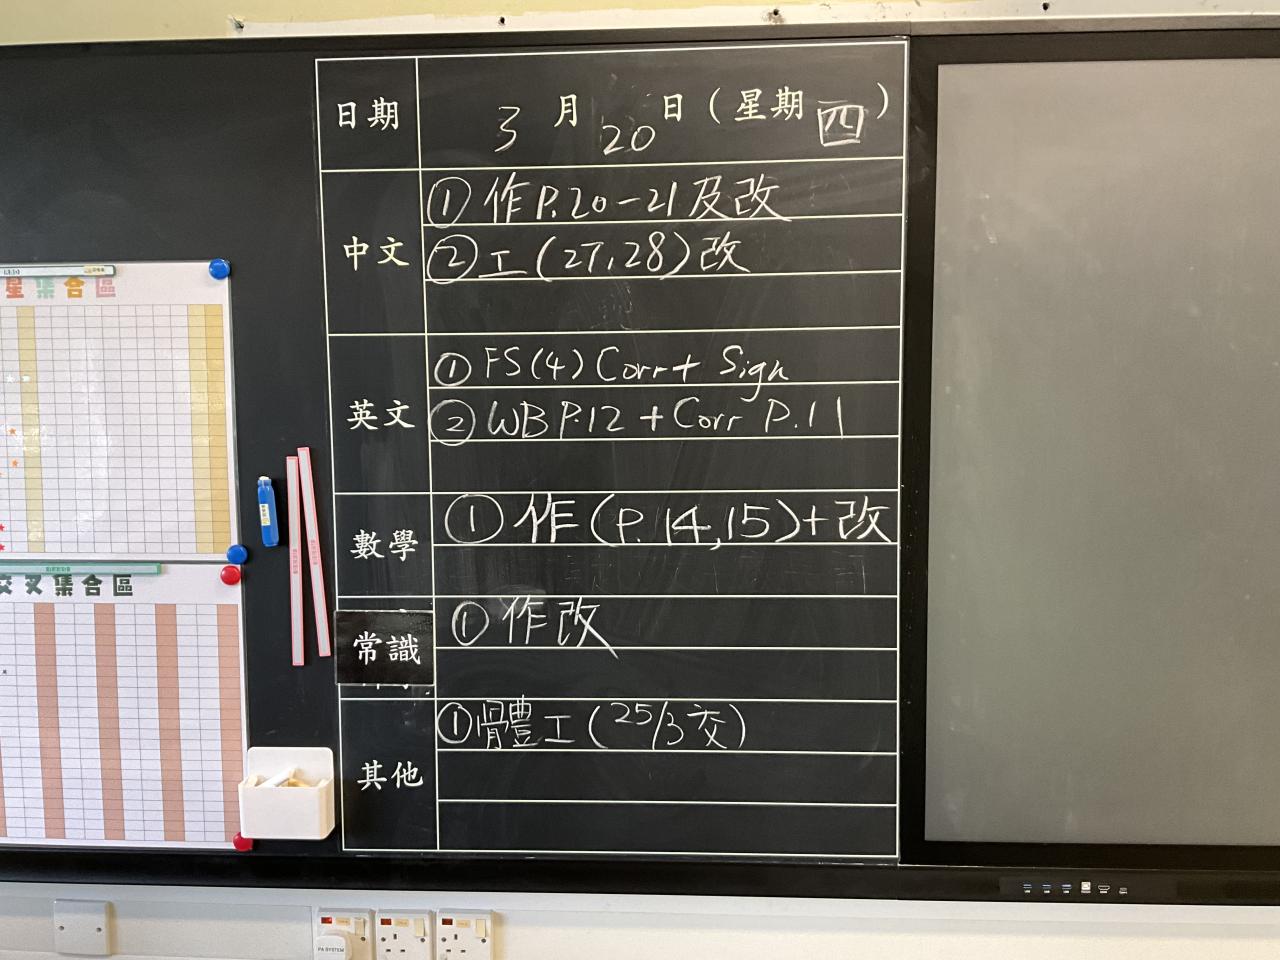 日期 3月20日(星期四)
中文
①作P.20-21及改
②工(27,28)改
英文
①FS(4) Corr+ Sign
②WB P.12 + Corr P.11
數學
①作(P.14,15)+改
常識
①作改
其他
①體工(25/3交)
星集合區
交叉集合區
PA SYSTEM